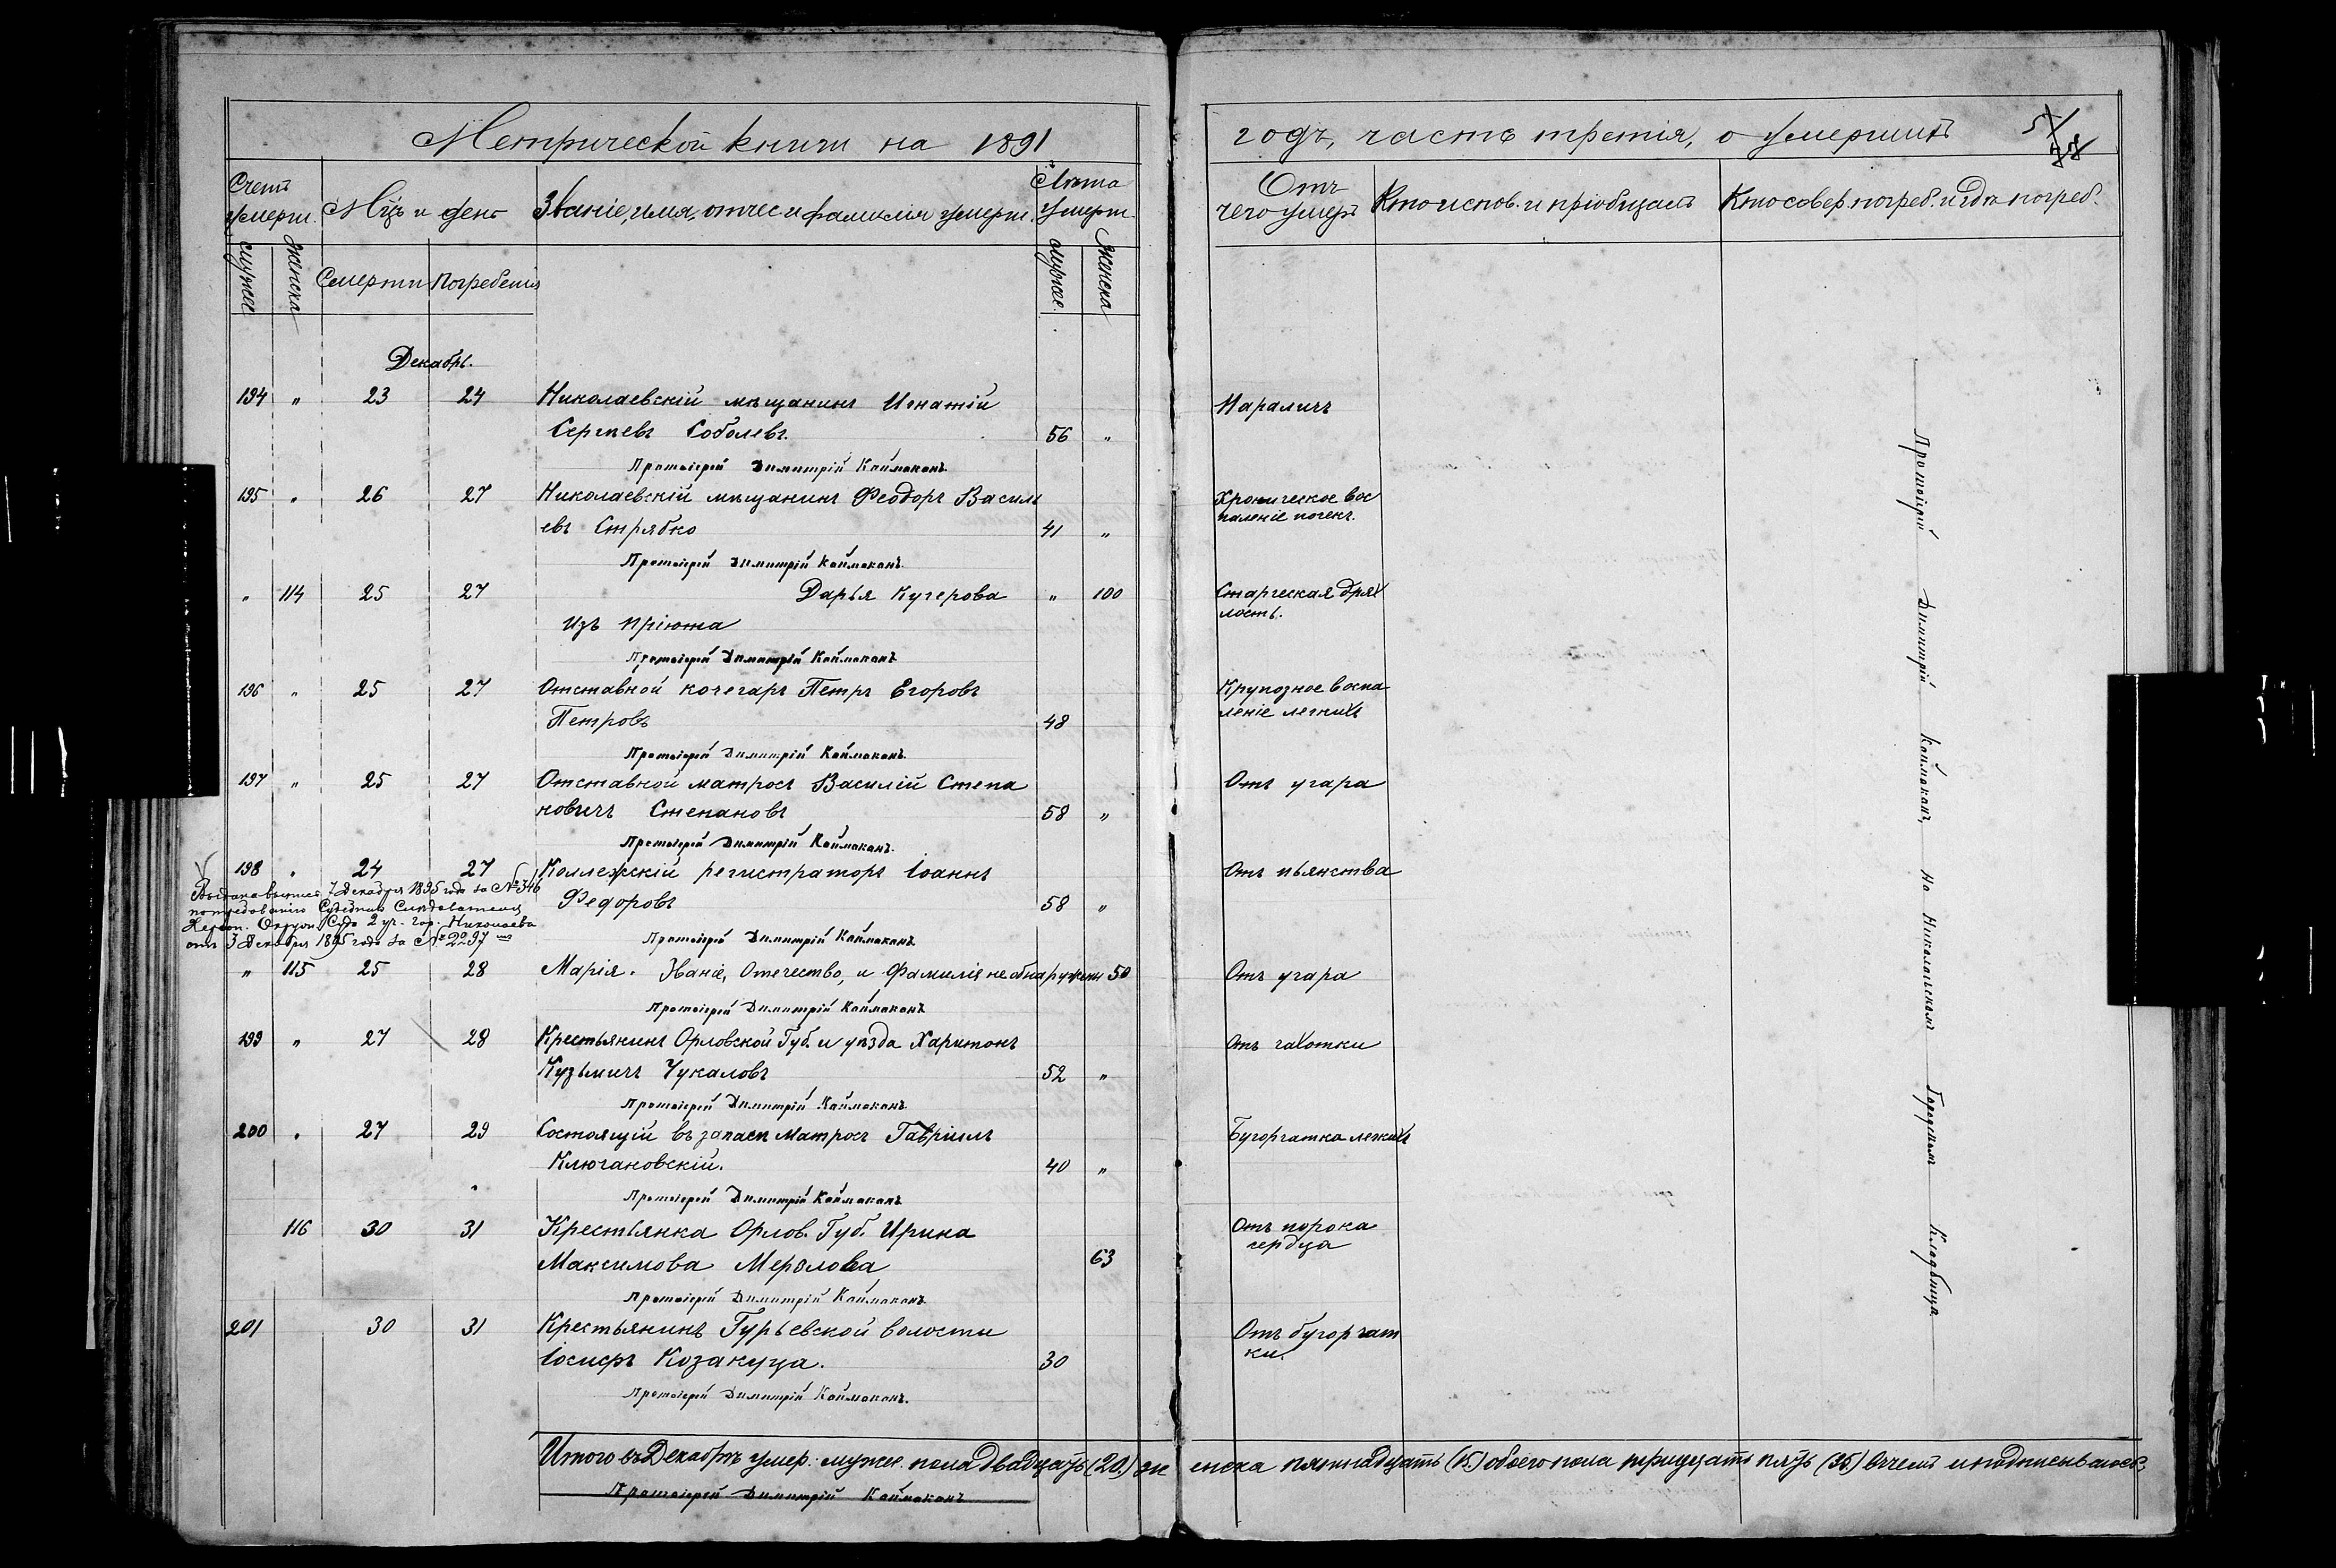 Метрической книги на 1891
годъ, часть третія, о умершихъ
Счетъ умерш.
Мцъ и день
Званіе, имя, отчес. и фамилія умерш.
Лѣта умерш.
Отъ чего умеръ
Кто испов. и пріобщалъ
Кто совер. погреб. и гдѣ погреб.
мужес.
женска
Смерти
Погребенія
мужес.
женска
Декабрь.
194 " 23 24 Николаевскій мѣщанинъ Игнатій Параличъ
Сергѣевъ Соболевъ. 56 "
Протоіерей Димитрій Каймаканъ
195 " 26 27 Николаевскій мѣщанинъ Феодоръ Васили Хроническое вос
евъ Стрябко 41 " паленіе почекъ.
Протоіерей Димитрій Каймаканъ
" 114 25 27 Дарья Кучерова " 100 Старческая дрях
Изъ пріюта лость.
Протоіерей Димитрій Каймаканъ
196 " 25 27 Отставной кочегаръ Петръ Егоровъ Крупозное воспа
Петровъ 48 леніе легкихъ
Протоіерей Димитрій Каймаканъ
197 " 25 27 Отставной матросъ Василій Степа Отъ угара
новичъ Степановъ 58 "
Протоіерей Димитрій Каймаканъ.
198 " 24 27 Коллежскій регистраторъ Іоаннъ Отъ пьянства
Федоровъ 58 "
Выдана выпись 7 декабря 1895 года за № 346
по требованію Судебнаго Слѣдователя
Херсон. Окруж. Суда 2 уч. гор. Николаева
отъ 3 декабря 1895 года за № 2297
Протоіерей Димитрій Каймаканъ
" 115 25 28 Марія. Званіе, Отечество, и Фамилія не обнаружены 50 Отъ угара
Протоіерей Димитрій Каймаканъ
199 " 27 28 Крестьянинъ Орловской Губ. и уѣзда Харитонъ Отъ чахотки
Кузьмичъ Чукаловъ 52 "
Протоіерей Димитрій Каймаканъ
200 " 27 29 Состоящій въ запасѣ матросъ Гавріилъ Бугорчатка легкихъ
Ключановскій. 40 "
Протоіерей Димитрій Каймаканъ
116 30 31 Крестьянка Орлов. Губ. Ирина Отъ порока
Максимова 63 сердца
Протоіерей Димитрій Каймаканъ
201 30 31 Крестьянинъ Гурьевской волости Отъ бугорчат
Іосифъ Козакуца. 30 ки.
Протоіерей Димитрій Каймаканъ.
Протоіерей Димитрій Каймаканъ, На Николаевскомъ Городскомъ Кладбищѣ
Итого въ Декабрѣ умер. мужес. пола двадцать (20.) же енска пятнадцать (15.) обоего пола тридцать пять (35.) Въ чемъ и подписываюсь,
Протоіерей Димитрій Каймаканъ